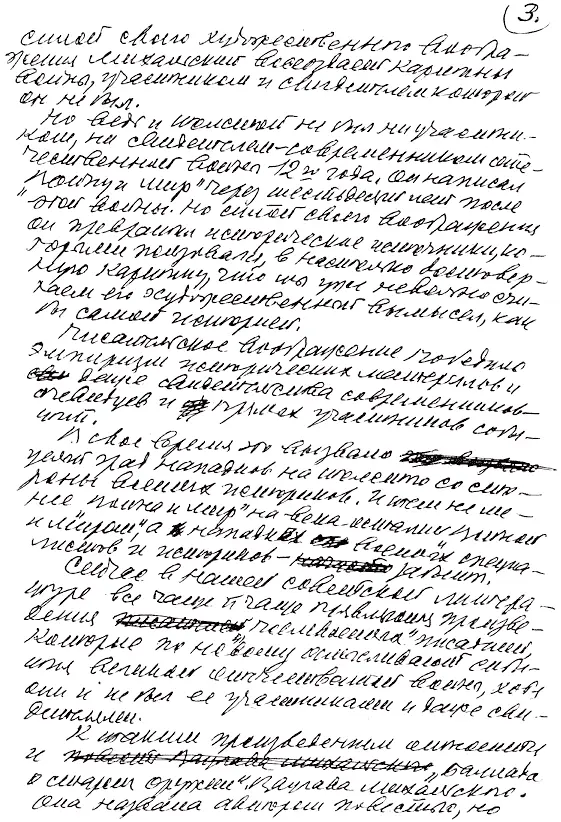 3.
силой своего художественного вообра-
жения Михальский воссоздает картины
войны, участником и свидетелем которой
он не был.
Но ведь и Толстой не был ни участни-
ком, ни свидетелем-современником оте-
чественной войны 12 года, он написал
„Войну и мир" через шестьдесят лет после
этой войны. Но силой своего воображения
он превратил исторические источники, ко-
торыми пользовался, в настолько достовер-
ную картину, что мы уже невольно счи-
таем его художественный вымысел, как
бы самой историей.
Писательское воображение победило
эмпиризм исторических материалов и
даже свидетельства современников-
очевидцев и прямых участников собы-
тий.
В свое время это вызвало
целый град нападков на Толстого со сто-
роны военных историков. И тем не ме-
нее „Война и мир" на века остались „Войной
и миром", а нападки военных специа-
листов и историков - забыты.
Сейчас в нашей советской литера-
туре все чаще и чаще появляются произве-
дения писателей,
которые по новому осмысливают собы-
тия великой отечественной войны, хотя
они и не были ее участниками и даже сви-
детелями.
К таким произведениям относится
и „Баллада
о старом оружии" Вацлава Михальского.
Она названа автором повестью, но